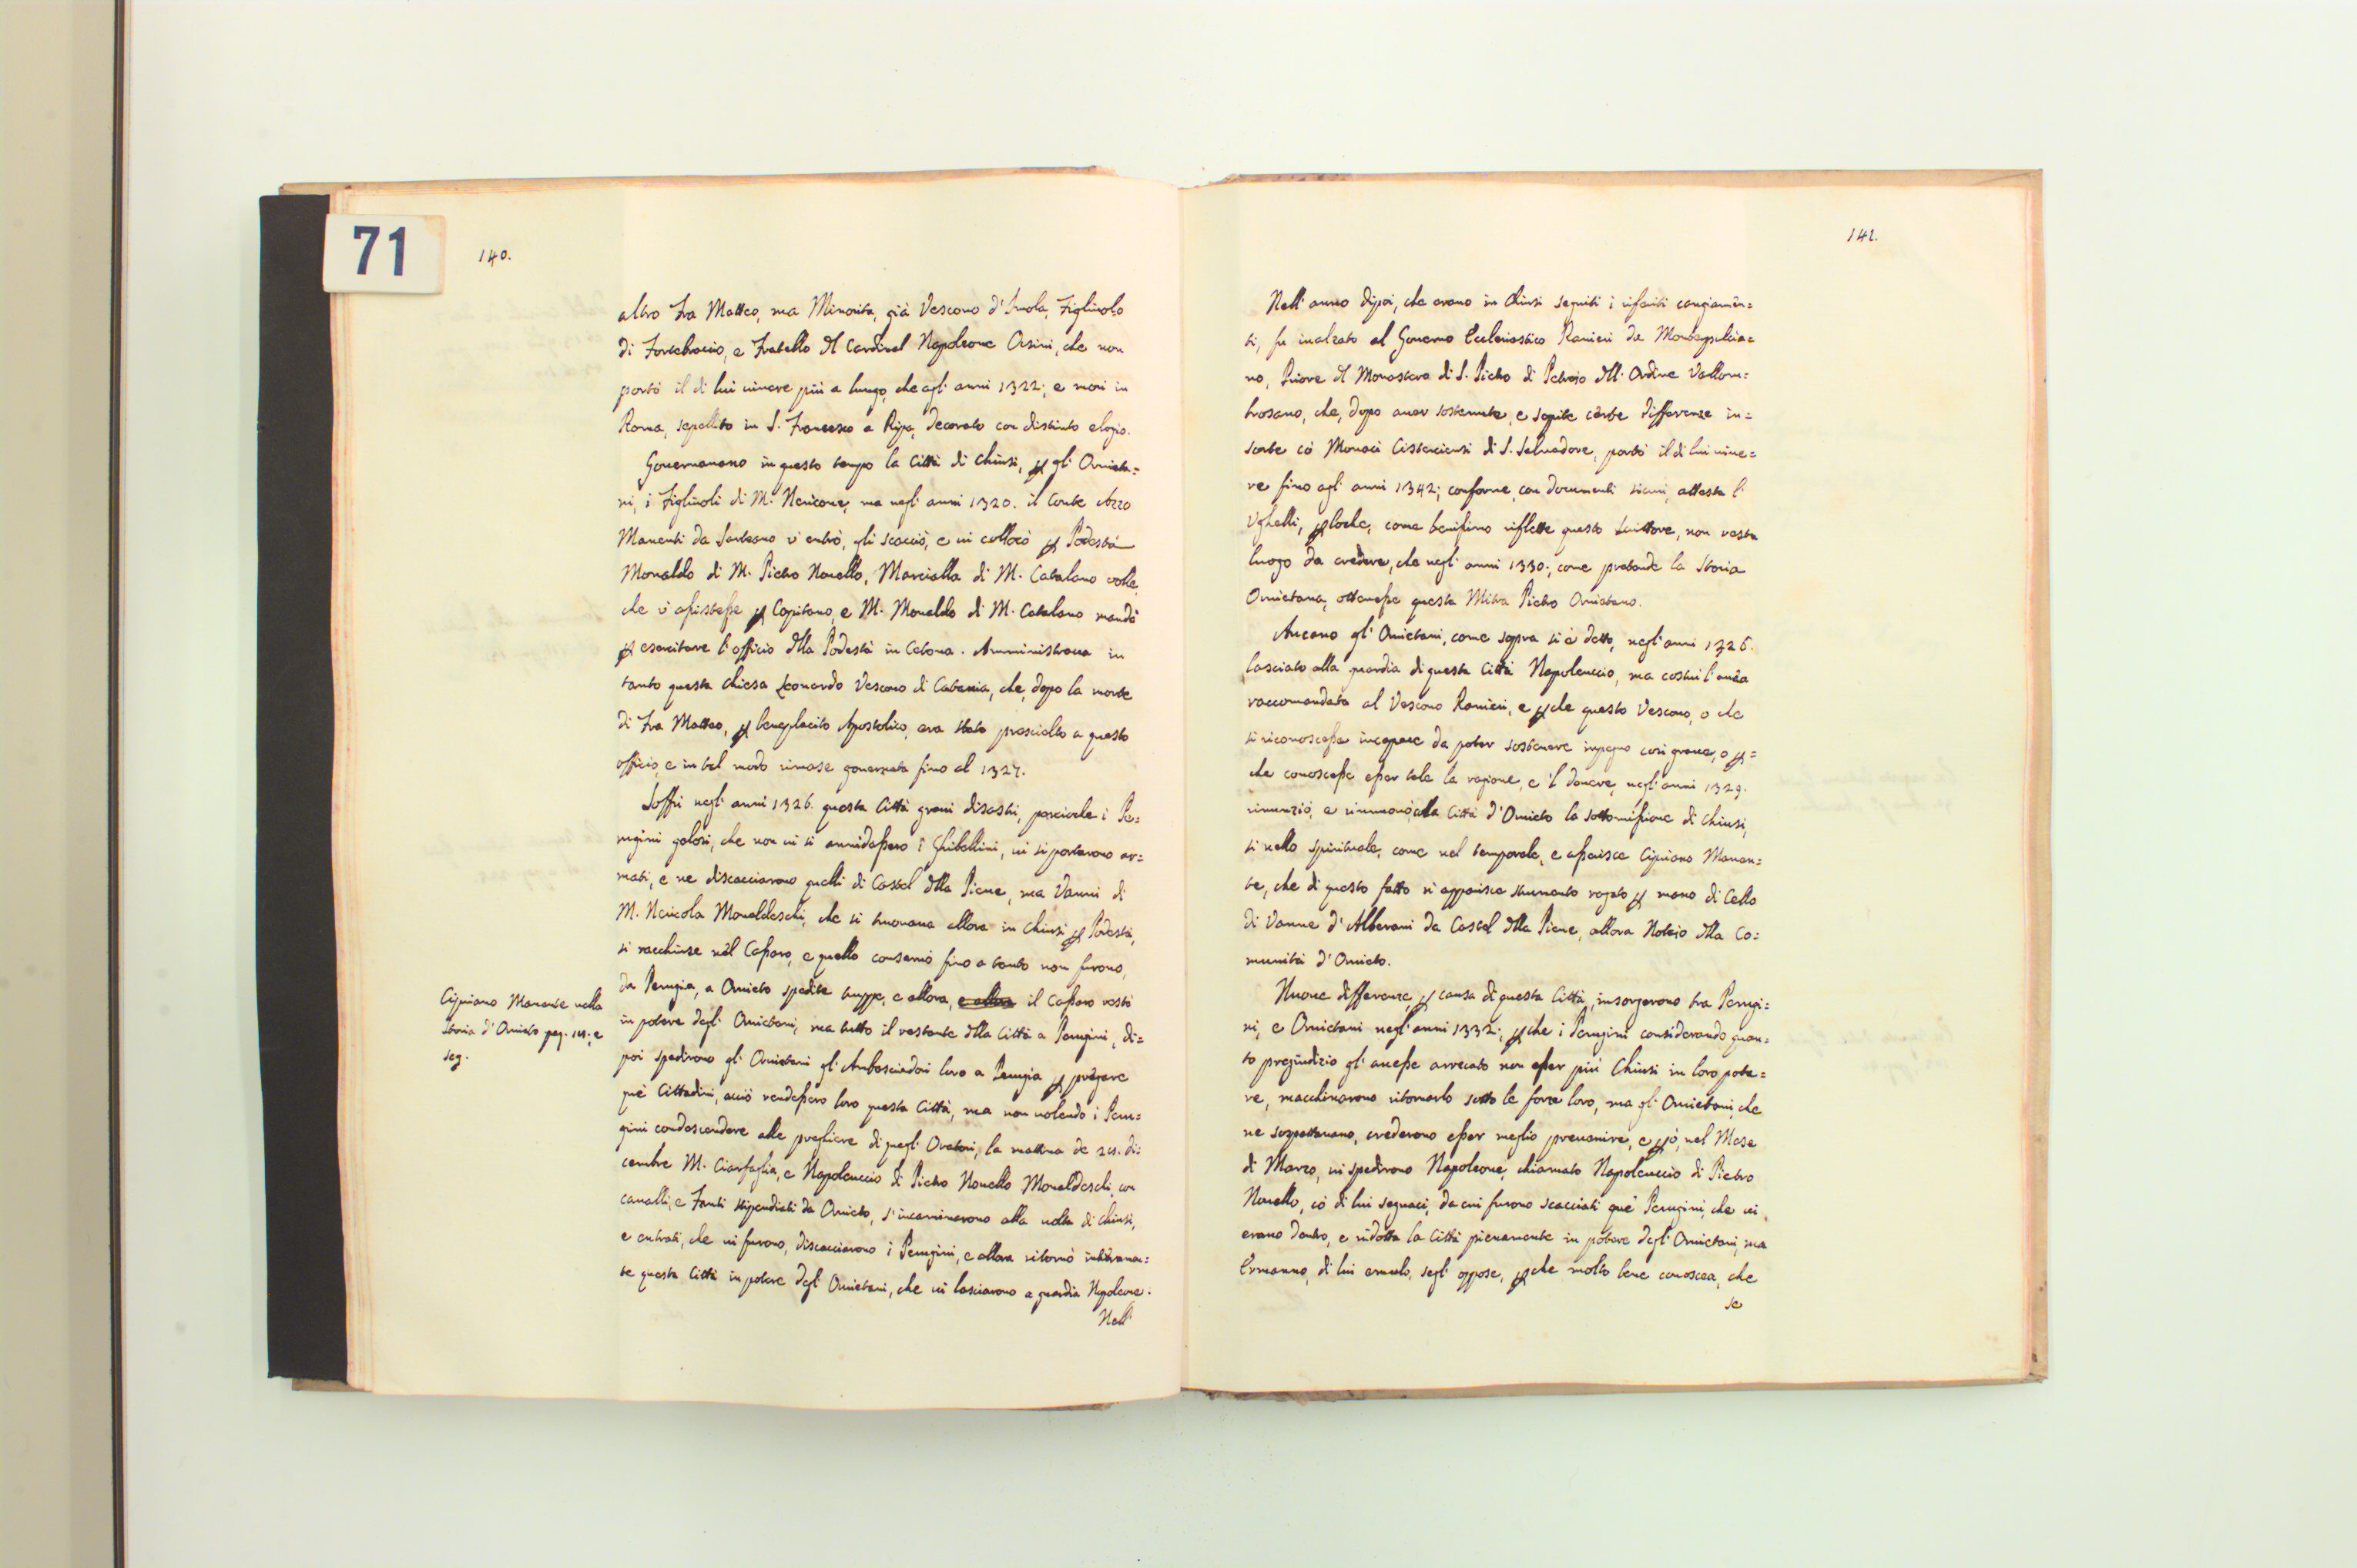 71
140.
altro Fra Matteo, ma Minorita, già Vescovo d'Imola, Figliuolo
di Fortebraccio, e Fratello del Cardinal Napoleone Orsini, che non
portò il di lui vivere più a lungo, che agl'anni 1322; e morì in
Roma, sepellito in S. Francesco a Ripa, decorato con distinto elogio.
Governavano in questo tempo la Città di Chiusi, per gli Orvieta=
ni, i Figliuoli di M. Nericone, ma negl'anni 1320. il Conte Azzo
Manenti da Sarteano v'entrò, gli scacciò, e vi collocò per Podestà
Monaldo di M. Pietro Novello, Marcialla di M. Catalano volle,
che v'assistesse per Capitano, e M. Monaldo di M. Catalano mandò
per esercitare l'officio della Podestà in Cetona. Amministrava in
tanto questa Chiesa Leonardo Vescovo di Catania, che, dopo la morte
di Fra Matteo, per beneplacito Apostolico, era stato prescielto a questo
officio, e in tal modo rimase governata fino al 1327.
Soffrì negl'anni 1326. questa Città gravi disastri, perciocche i Pe=
rugini gelosi, che non vi si annidassero i Ghibellini, vi si portarono ar=
mati, e ne discacciarono quelli di Castel della Pieve, ma Vanni di
M. Nericola Monaldeschi, che si trovava allora in Chiusi per Podestà,
si racchiuse nel Cassaro, e quello conservò fino a tanto non furono,
da Perugia, a Orvieto spedite truppe, e allora, e allora il Cassaro restò
in potere degl'Orvietani, ma tutto il restante della Città a Perugini, di=
poi spedirono gl'Orvietani gl'Ambasciadori loro a Perugia per pregare
que' Cittadini, acciò rendessero loro questa Città, ma non volendo i Peru=
gini condescendere alle preghiere di quegl'Oratori, la mattina de 24. di=
cembre M. Ciarfaglia, e Napoleuccio di Pietro Novello Monaldeschi, con
cavalli, e Fanti stipendiati da Orvieto, s'incaminarono alla volta di Chiusi,
e entrati, che vi furono, discacciarono i Perugini, e allora ritornò intieramen=
te questa Città in potere degl'Orvietani, che vi lasciarono a guardia Napoleone.
Nell'
Cipriano Manente nella
storia d'Orvieto pag. e
seg.
141.
Nell'anno dipoi, che erano in Chiusi seguiti i riferiti cangiamen=
ti, fu inalzato al Governo Ecclesiastico Ranieri da Montepulcia=
no, Priore del Monastero di S. Pietro di Petroio dell'Ordine Vallom=
brosano, che, dopo aver sostenute, e sopite certe differenze in=
sorte co' Monaci Cisterciensi di S. Salvadore, portò il di lui vive=
re fino agl'anni 1342; conforme, con documenti sicuri, attesta l'
Ughelli, perloche, come benissimo riflette questo Scrittore, non resta
luogo da credere, che negl'anni 1330, come pretende la Storia
Orvietana, ottenesse questa Mitra Pietro Orvietano.
Aveano gl'Orvietani, come sopra si è detto, negl'anni 1326.
lasciato alla guardia di questa Città Napoleuccio, ma costui l'avea
raccomandata al Vescovo Ranieri, e perche questo Vescovo, o che
si riconoscesse incapace da poter sostenere impegno così grave, o per=
che conoscesse esser tale la ragione, e 'l dovere, negl'anni 1329.
rinunziò, e rinnovò alla Città d'Orvieto la sottomissione di Chiusi,
sì nello spirituale, come nel temporale, e asserisce Cipriano Manen=
te, che di questo fatto n'apparisce strumento rogato per mano di Cello
di Vanne d'Alberani da Castel della Pieve, allora Notaio della Co=
munità d'Orvieto.
Nuove differenze, per causa di questa Città, insorgerono tra Perugi=
ni, e Orvietani negl'anni 1332; perche i Perugini considerando quan=
to pregiudizio gl'avesse arrecato non esser più Chiusi in loro pote=
re, macchinarono ritornarlo sotto le forze loro, ma gl'Orvietani, che
ne sospettavano, crederono esser meglio prevenire, e però, nel Mese
di Marzo, vi spedirono Napoleone, chiamato Napoleuccio di Pietro
Novello, co' di lui seguaci, da cui furono scacciati que' Perugini, che vi
erano dentro, e ridotta la Città pienamente in potere degl'Orvietani, ma
Ermanno, di lui emulo, segl'oppose, perche molto bene conoscea, che
se